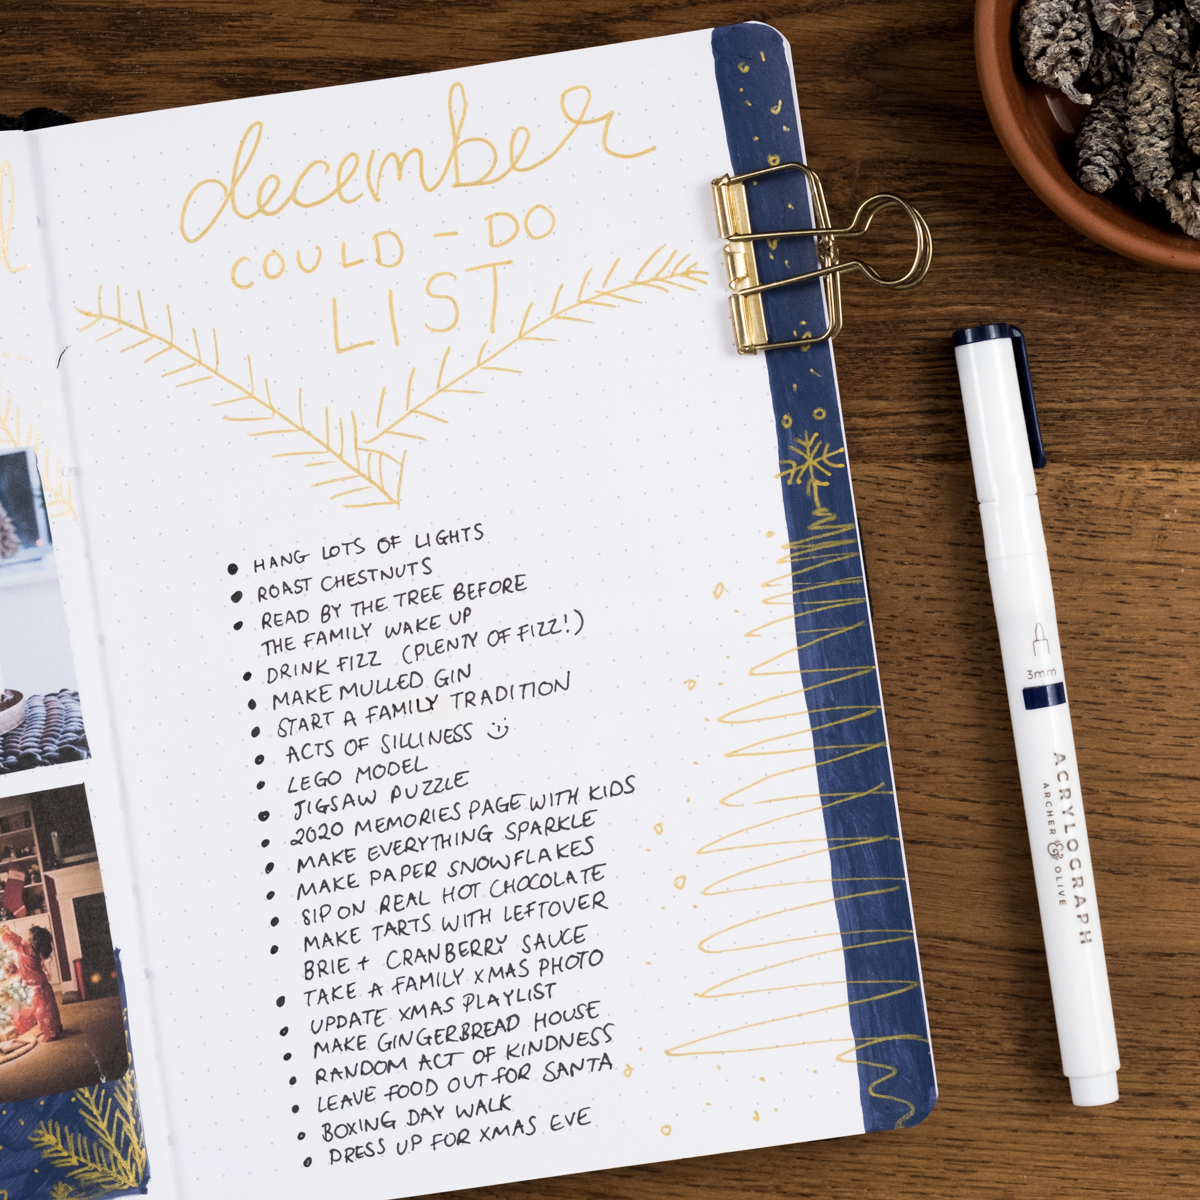 december
COULD - DO
LIST
• HANG LOTS OF LIGHTS
• ROAST CHESTNUTS
• READ BY THE TREE BEFORE
THE FAMILY WAKE UP
• DRINK FIZZ (PLENTY OF FIZZ!)
• MAKE MULLED GIN
• START A FAMILY TRADITION
• ACTS OF SILLINESS
• LEGO MODEL
• JIGSAW PUZZLE
• 2020 MEMORIES PAGE WITH KIDS
• MAKE EVERYTHING SPARKLE
• MAKE PAPER SNOWFLAKES
• SIP ON REAL HOT CHOCOLATE
• MAKE TARTS WITH LEFTOVER
BRIE + CRANBERRY SAUCE
• TAKE A FAMILY XMAS PHOTO
• UPDATE XMAS PLAYLIST
• MAKE GINGERBREAD HOUSE
• RANDOM ACT OF KINDNESS
• LEAVE FOOD OUT FOR SANTA
• BOXING DAY WALK
• DRESS UP FOR XMAS EVE
3mm
ACRYLOGRAPH
ARCHER & OLIVE